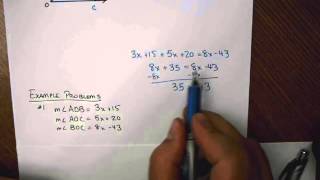 C
3x+15+5x+20=8x-43
8x+35=8x-43
-8x
35 3
EXAMPLE PROBLEMS
#1 m∠AOB = 3x+15
m∠AOC = 5x+20
m∠BOC = 8x-43